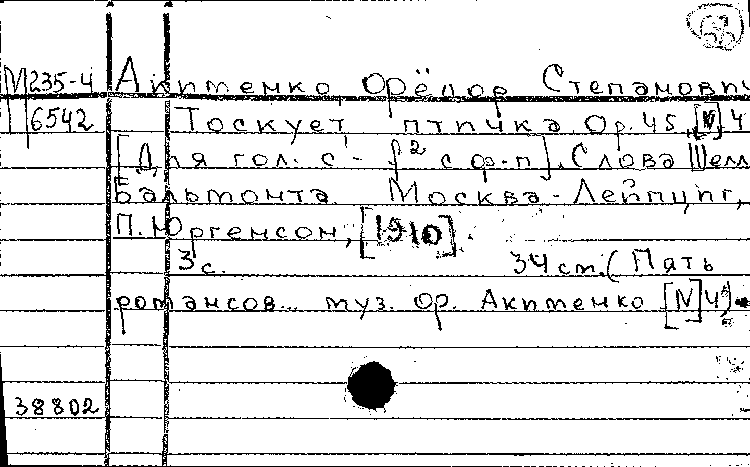 М235-4 Акименко, Фёдор Степанович
6542 Тоскует птичка Op. 45, [N] 4
[Для гол. с - f² с ф-п]. Слова Шелл
Бальмонта Москва - Лейпциг,
П. Юргенсон, [1910].
3 с. 34 cm. (Пять
романсов... муз. Ор. Акименко [N] 4)
38802